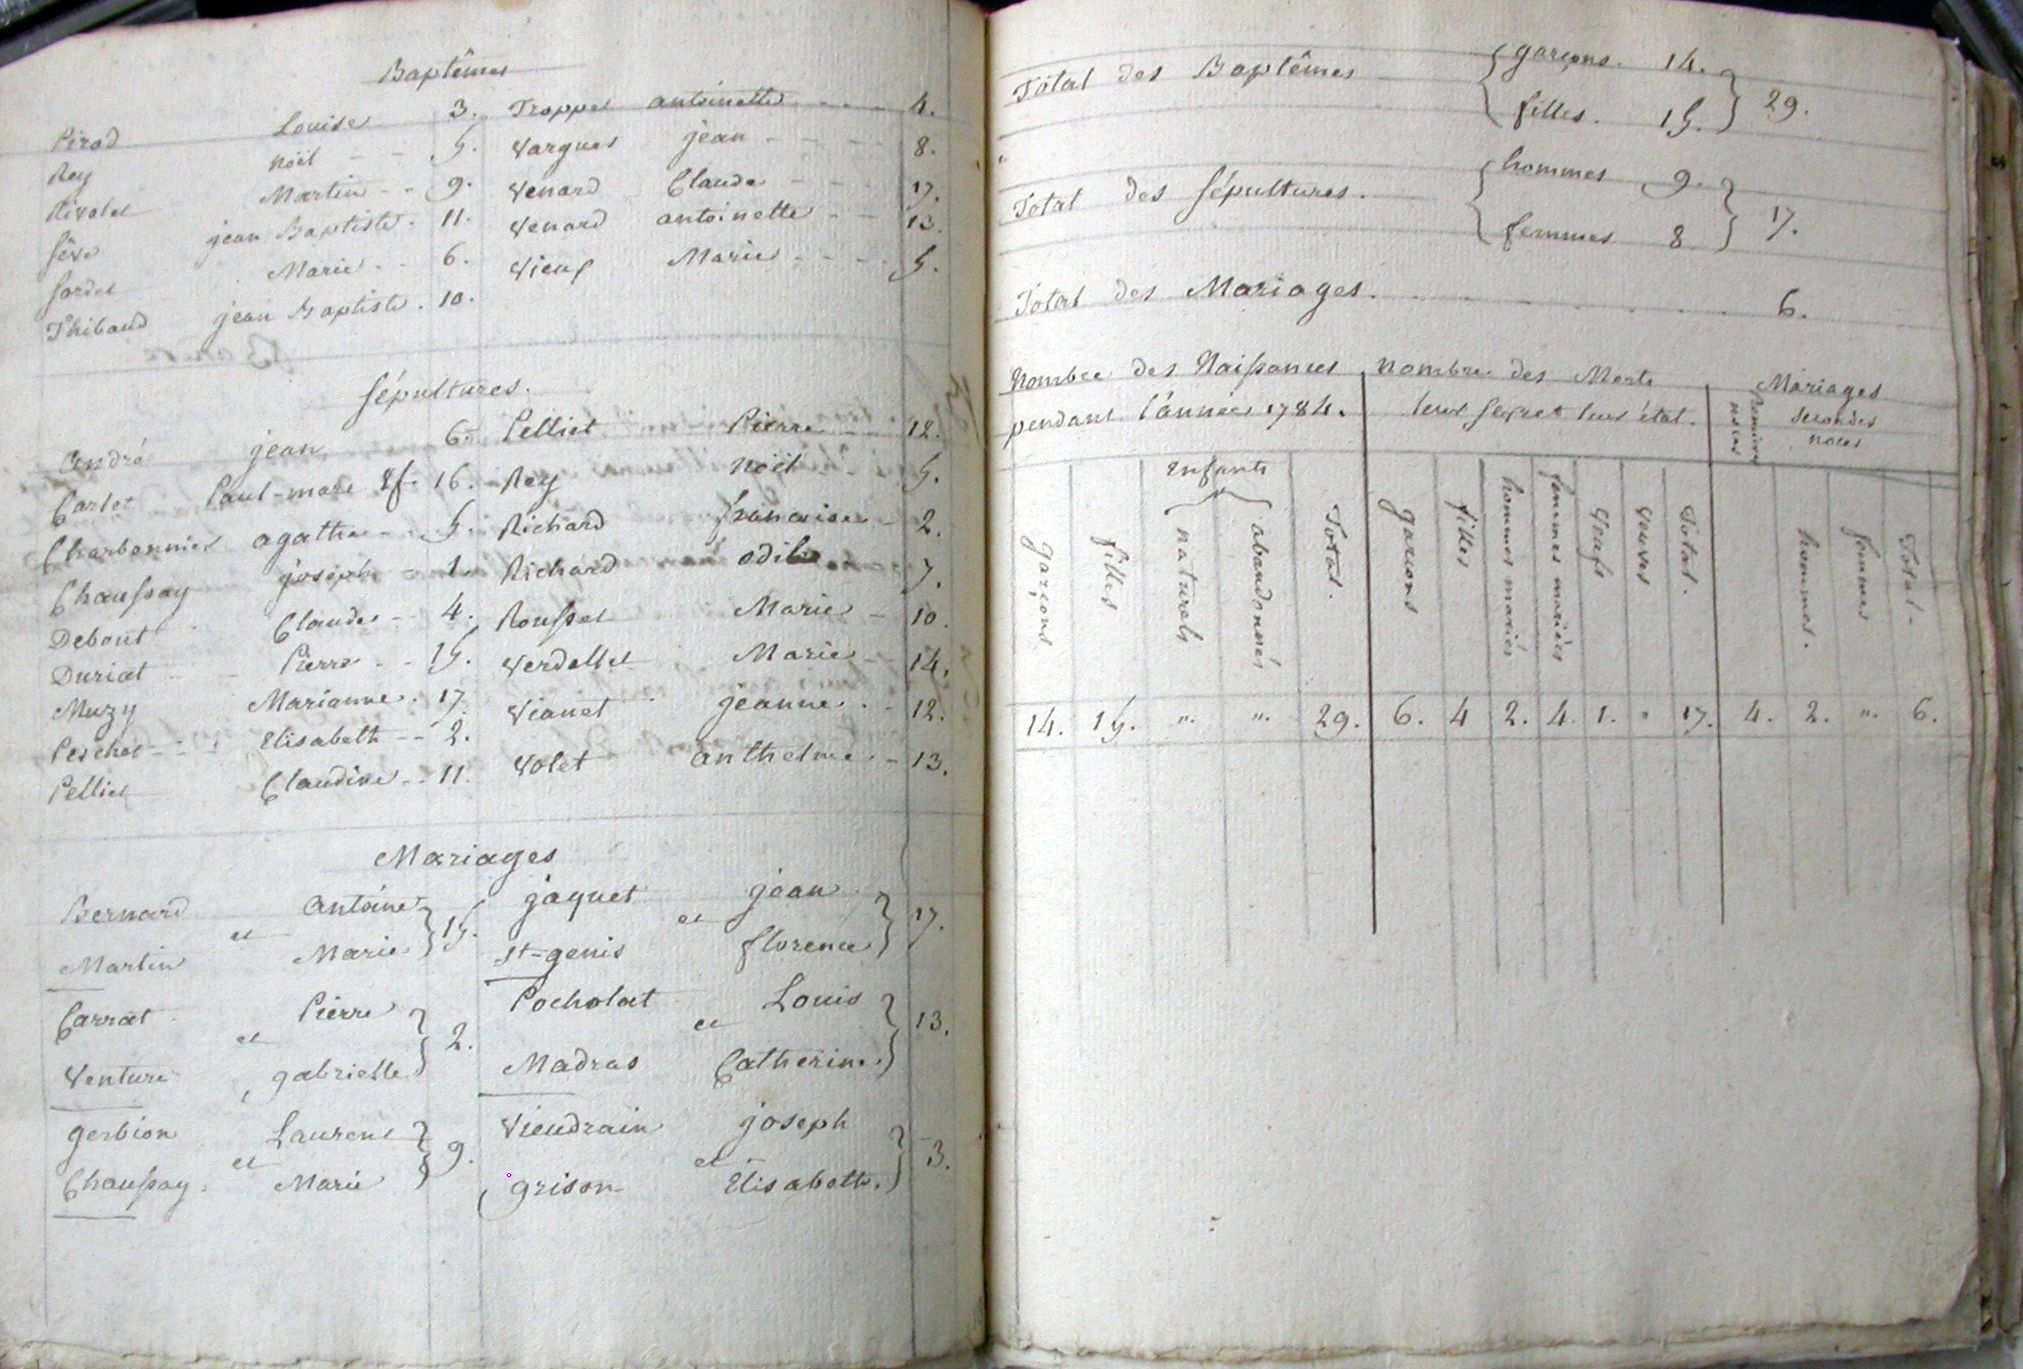 Baptêmes
Pirod Louise 3.
Rey noël 5.
Rivolet Martin 9.
Sève jean Baptiste 11.
Sordet Marie 6.
Thibaud jean Baptiste 10.
Troppet antoinette 4.
Vargues jean 8.
Venard Claude 17.
Venard antoinette 13.
Vieux Marie 5.
Sépultures.
André jean 6.
Carlet Paul-marc 16.
Charbonnier agathe 5.
Chaussay joseph 1.
Debout Claude 4.
Duriat Pierre 15.
Muzy Marianne 17.
Peschet Elisabeth 2.
Pelliet Claudine 11.
Pelliet Pierre 12.
Rey noël 5.
Richard françoise 2.
Richard odile 7.
Rousset Marie 10.
Verdellet Marie 14.
Vianet jeanne 12.
Volet anthelme 13.
Mariages
Bernard Antoine
et 15.
Martin Marie
Carrat Pierre
et 2.
Venture gabrielle
gerbion Laurent
et 9.
Chaussay Marie
jaquet jean
et 17.
St-genis florence
Pocholat Louis
et 13.
Madras Catherine
Vieudrain joseph
et 3.
grison Elisabeth.
Total des Baptêmes
garçons. 14.
filles. 15.
29.
Total des Sépultures.
hommes 9.
femmes 8
17.
Total des Mariages. 6.
Nombre des Naissances
pendant l'année 1784.
nombre des Morts
leur sexe et leur état.
Mariages
Premières
noces
secondes
noces
garçons
filles
Enfants
naturels
abandonnés
Total.
garçons
filles
hommes mariés
femmes mariées
Veufs
veuves
Total.
hommes.
femmes
Total
14. 15. ". ". 29. 6. 4 2. 4. 1. " 17. 4. 2. ". 6.